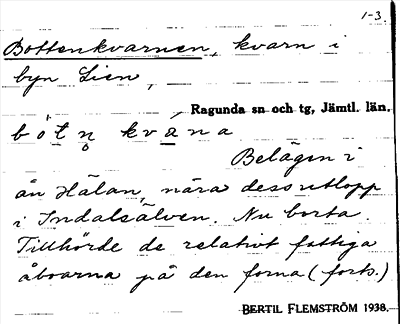 1-3.
Bottenkvarnen, kvarn i
byn Lien,
Ragunda sn och tg, Jämtl. län.
bótn̥ kvána
Belägen i
ån Hälan, nära dess utlopp
i Indalsälven. Nu borta.
Tillhörde de relativt fattiga
åboarna på den forna (forts.)
BERTIL FLEMSTRÖM 1938.